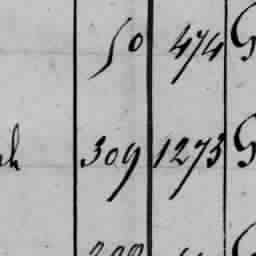 50 474 G
309 1273 G